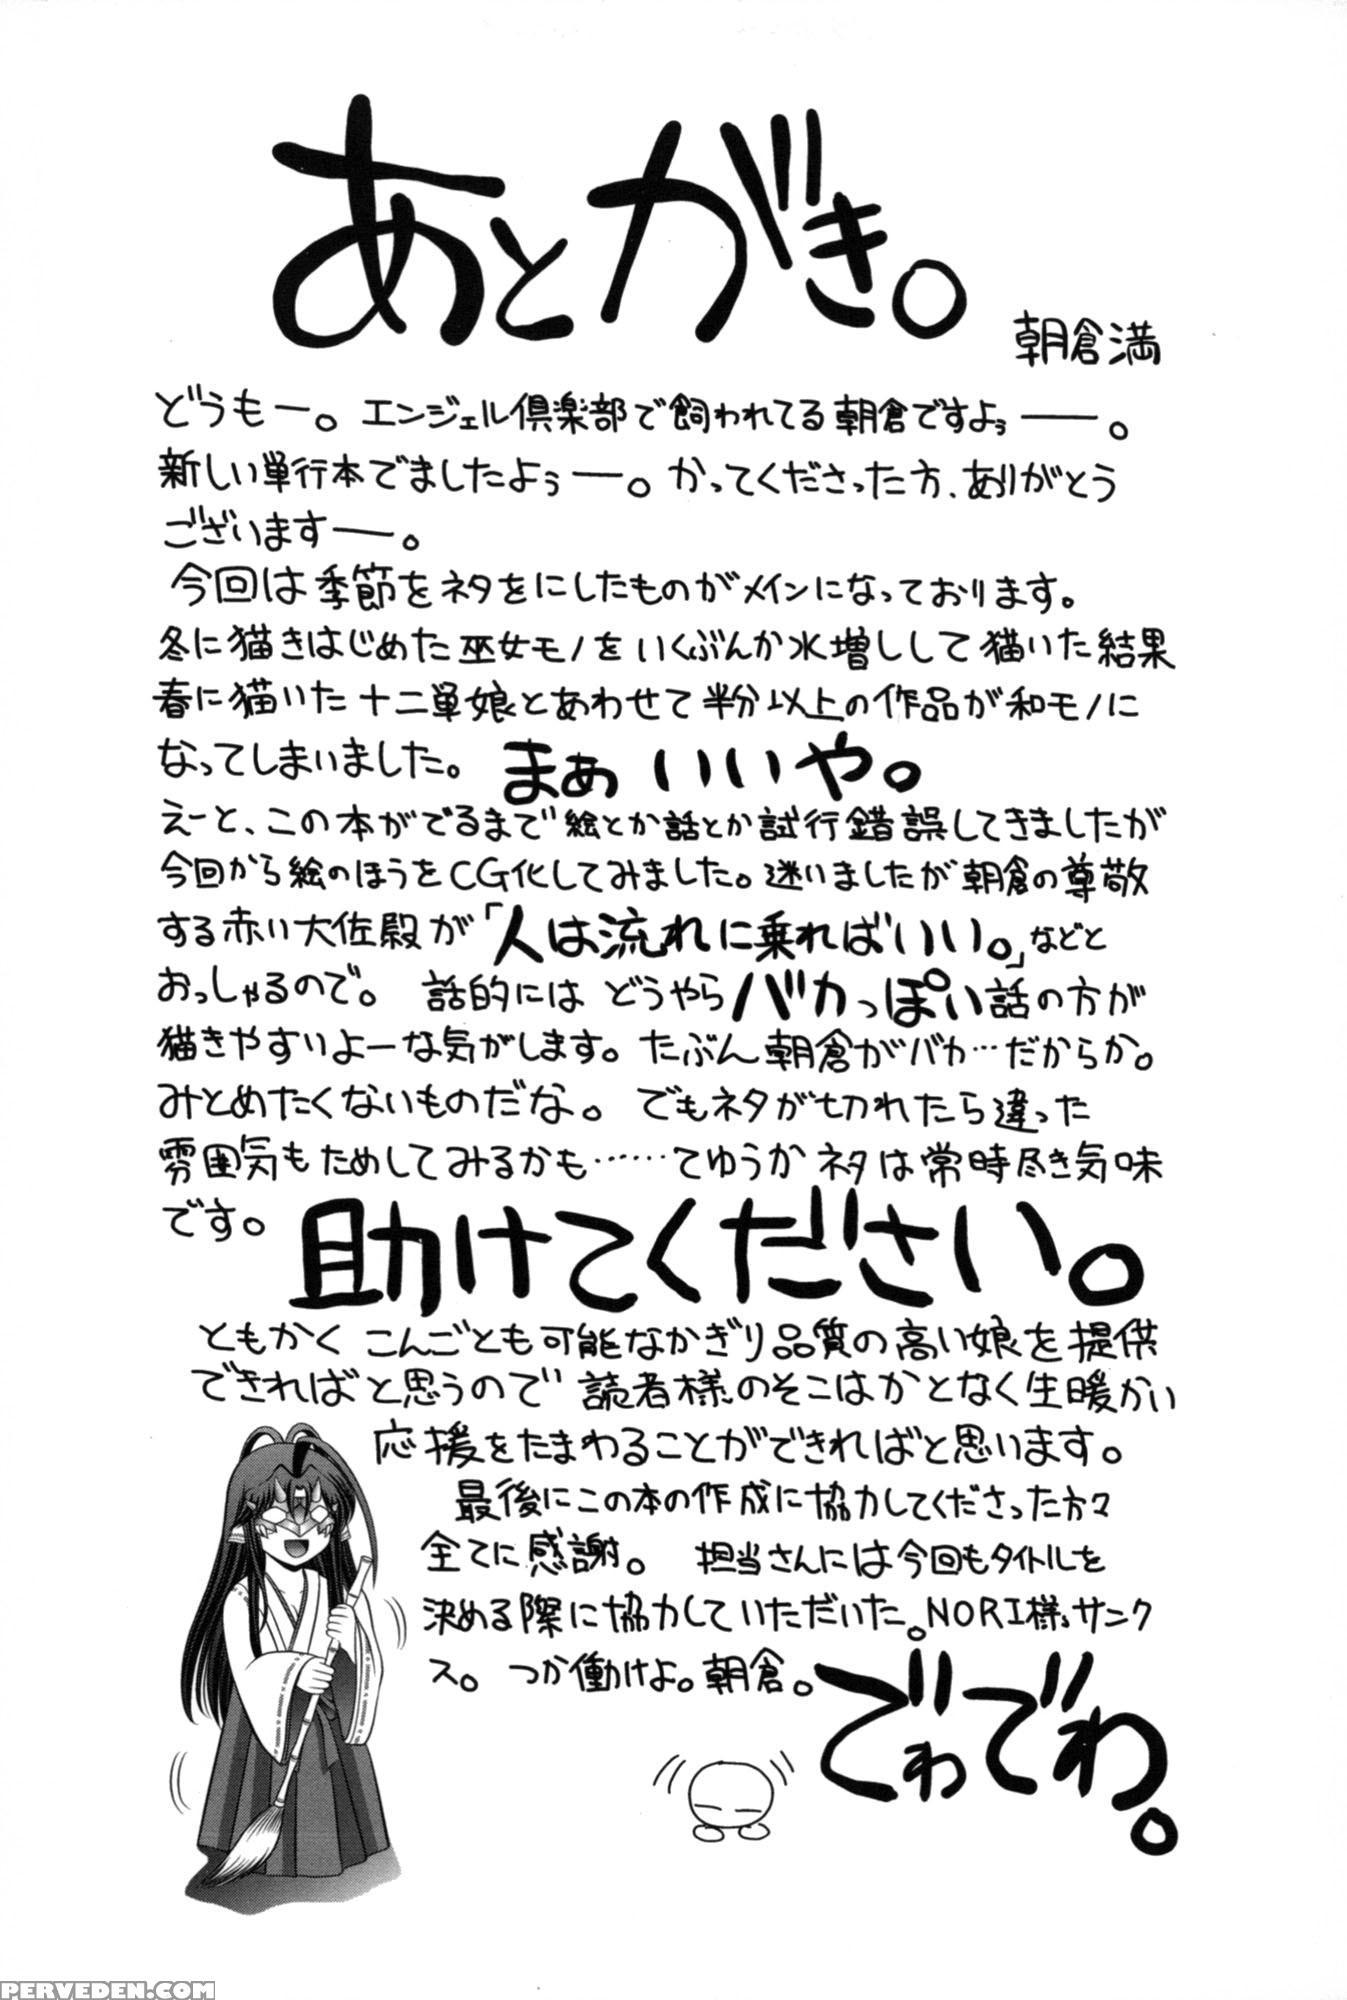 あとがき。
朝倉満
どうもー。エンジェル倶楽部で飼われてる朝倉ですよぅ――。
新しい単行本でましたよぅ――。かってくださった方、ありがとう
ございます――。
今回は季節をネタをにしたものがメインになっております。
冬に猫きはじめた巫女モノをいくぶんか水増しして猫いた結果
春に猫いた十二単娘とあわせて半分以上の作品が和モノに
なってしまいました。まぁいいや。
えーと、この本がでるまで絵とか話とか試行錯誤してきましたが
今回から絵のほうをCG化してみました。迷いましたが朝倉の尊敬
する赤い大佐殿が「人は流れに乗ればいい。」などと
おっしゃるので。話的にはどうやらバカっぽい話の方が
猫きやすいよーな気がします。たぶん朝倉がバカ…だからか。
みとめたくないものだな。でもネタが切れたら違った
雰囲気もためしてみるかも……てゆうかネタは常時尽き気味
です。助けてください。
ともかくこんごとも可能なかぎり品質の高い娘を提供
できればと思うので読者様のそこはかとなく生暖かい
応援をたまわることができればと思います。
最後にこの本の作成に協力してくださった方々
全てに感謝。担当さんには今回もタイトルを
決める際に協力していただいた。NORI様サンク
ス。つか働けよ。朝倉。でわでわ。
PERVEDEN.COM